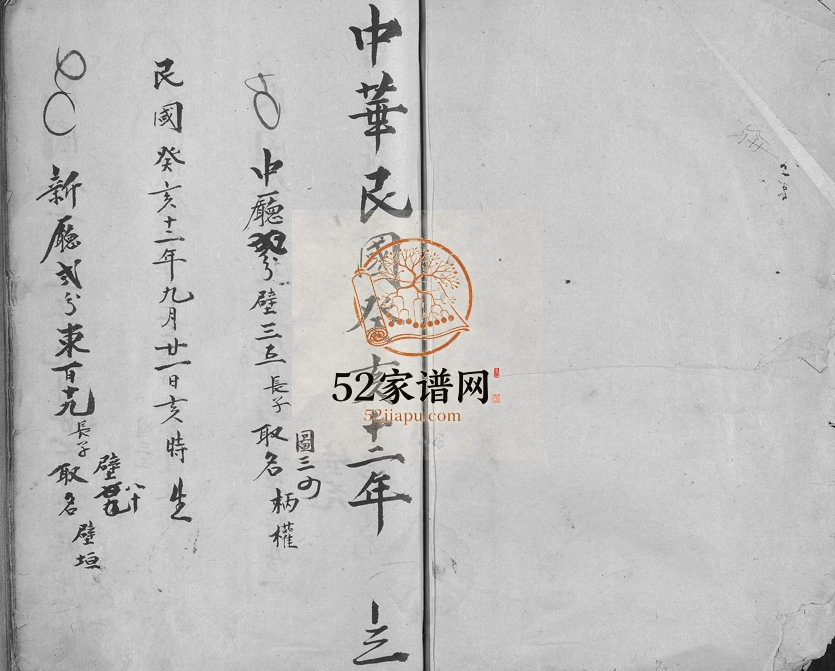 中華民國癸亥十二年 立
中廳 分壁三五長子取名柄權
圖三四
民國癸亥十二年九月廿一日亥時生
新廳弍分東百十九長子取名壁垣
壁 八十
52家谱网
52jiapu.com